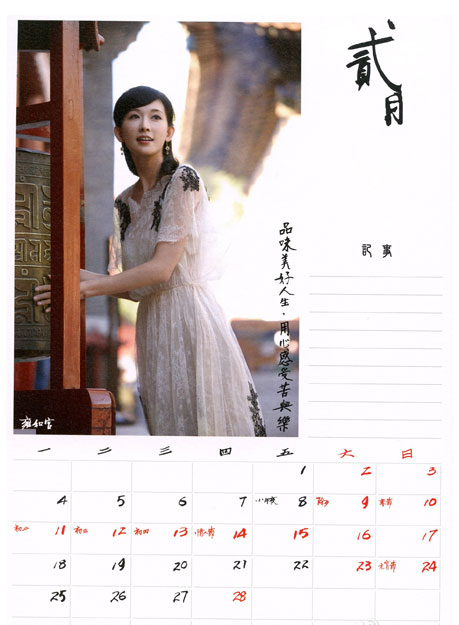 貳月
記事
品味美好人生，用心感受苦與樂
雍和宮
一 二 三 四 五 六 日
1 2 3
4 5 6 7 小年夜 8 除夕 9 春節 10
初二 11 初三 12 初四 13 情人節 14 15 16 17
18 19 20 21 22 23 元宵節 24
25 26 27 28